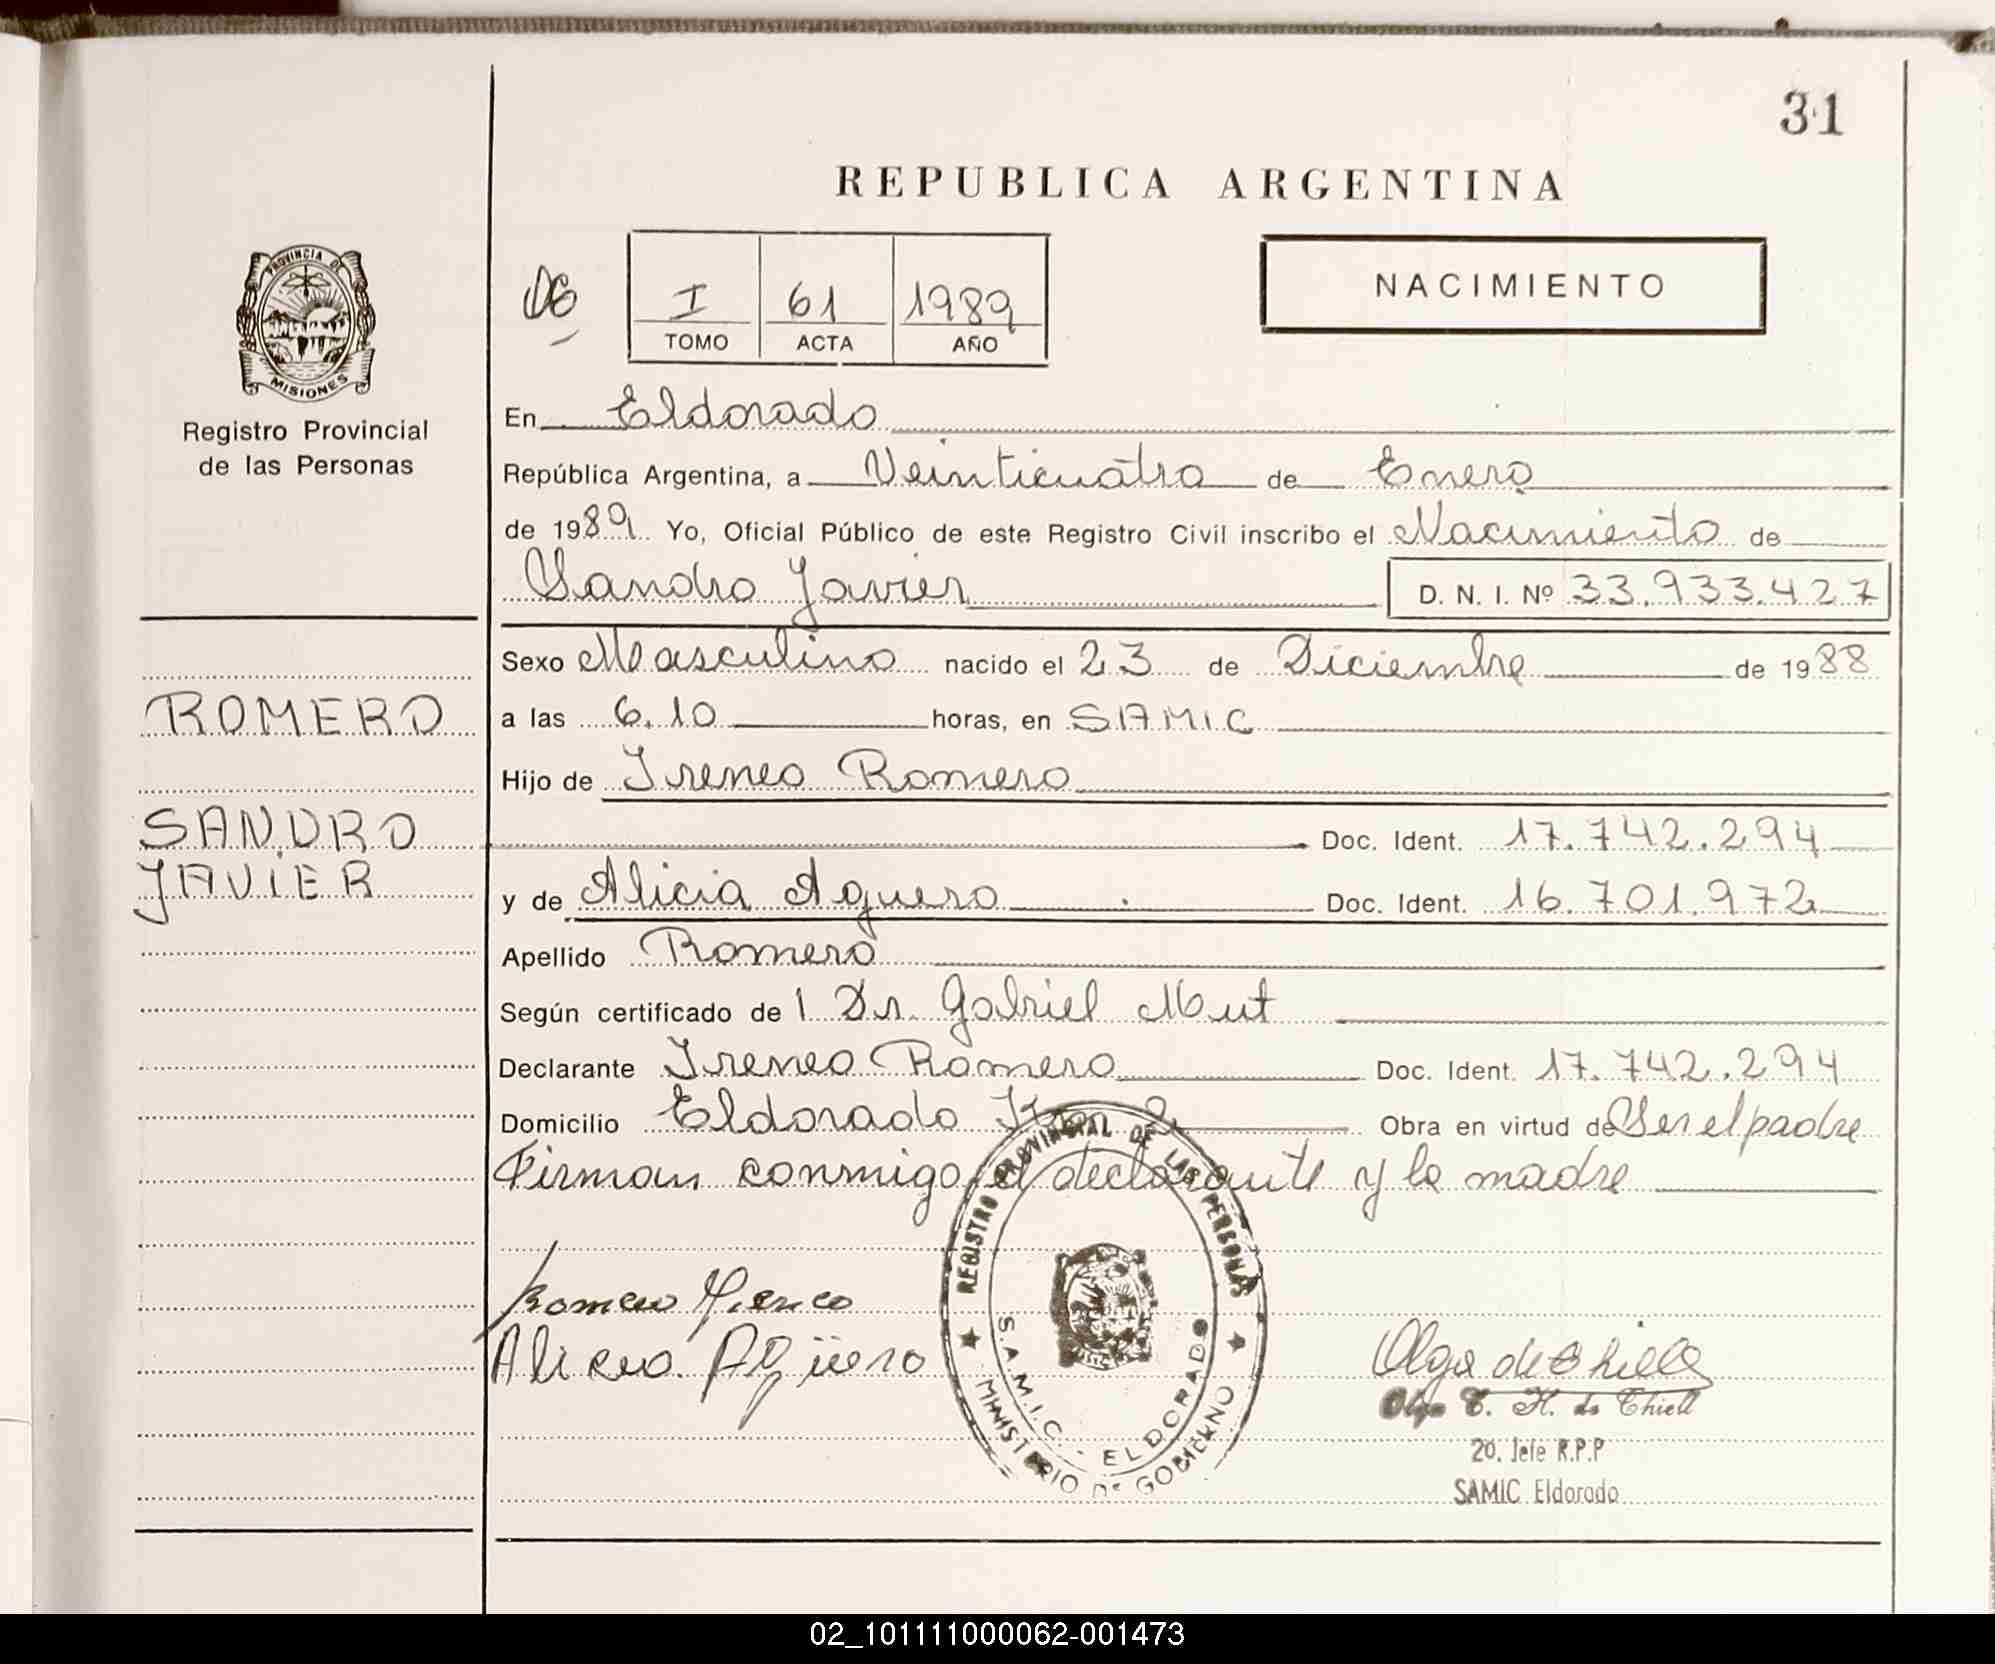 31
REPUBLICA ARGENTINA
NACIMIENTO
I 61 1989
TOMO ACTA AÑO
PROVINCIA DE
MISIONES
Registro Provincial
de las Personas
ROMERO
SANDRO
JAVIER
En Eldorado
República Argentina, a Veinticuatro de Enero
de 1989. Yo, Oficial Público de este Registro Civil inscribo el Nacimiento de
Sandro Javier D. N. I. Nº 33.933.427
Sexo Masculino nacido el 23 de Diciembre de 1988
a las 6.10 horas, en SAMIC
Hijo de Ireneo Romero
Doc. Ident. 17.742.294
y de Alicia Aguero Doc. Ident. 16.701.972
Apellido Romero
Según certificado de l Dr. Gabriel Mut
Declarante Ireneo Romero Doc. Ident. 17.742.294
Domicilio Eldorado Km Obra en virtud de Ser el padre
Firman conmigo el declarante y la madre
Romero Ireneo
Alicia Agüero
REGISTRO PROVINCIAL DE LAS PERSONAS
S.A.M.I.C. - ELDORADO
MINISTERIO DE GOBIERNO
Olga de Chiell
Olga C. H. de Chiell
20. Jefe R.P.P
SAMIC Eldorado
02_101111000062-001473